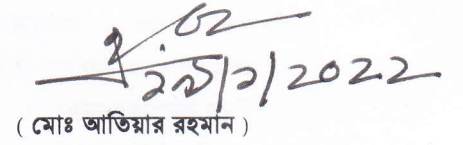 ২৯/১/2022
( মোঃ আতিয়ার রহমান )